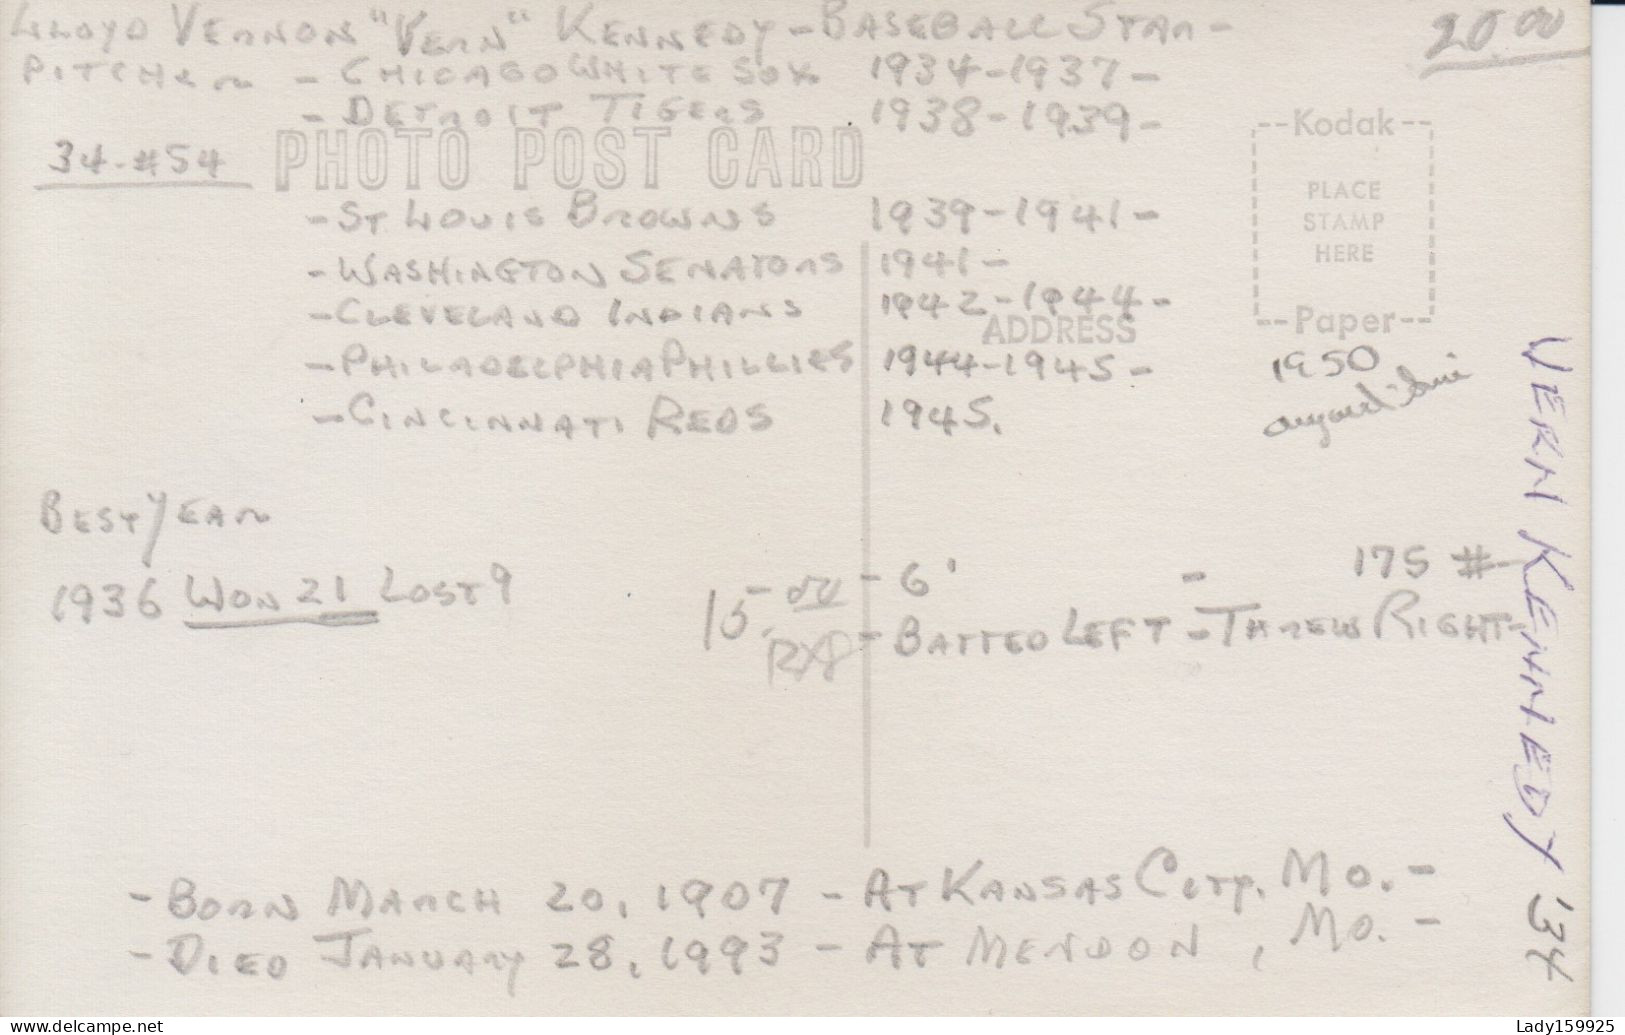 Lloyd Vernon "Vern" Kennedy - Baseball Star - 20 00
Pitcher - Chicago White Sox 1934-1937 -
- Detroit Tigers 1938-1939 -
34-#54
PHOTO POST CARD
--Kodak--
PLACE
STAMP
HERE
--Paper--
- St Louis Browns 1939-1941 -
- Washington Senators 1941 -
- Cleveland Indians 1942-1944 -
ADDRESS
- Philadelphia Phillies 1944-1945 -
- Cincinnati Reds 1945.
1950
Best Year
1936 Won 21 Lost 9
15 - - 6' - 175 # -
- Batted Left - Threw Right -
- Born March 20, 1907 - At Kansas City, Mo. -
- Died January 28, 1993 - At Mendon, Mo. -
VERN KENNEDY '34
www.delcampe.net
Lady159925